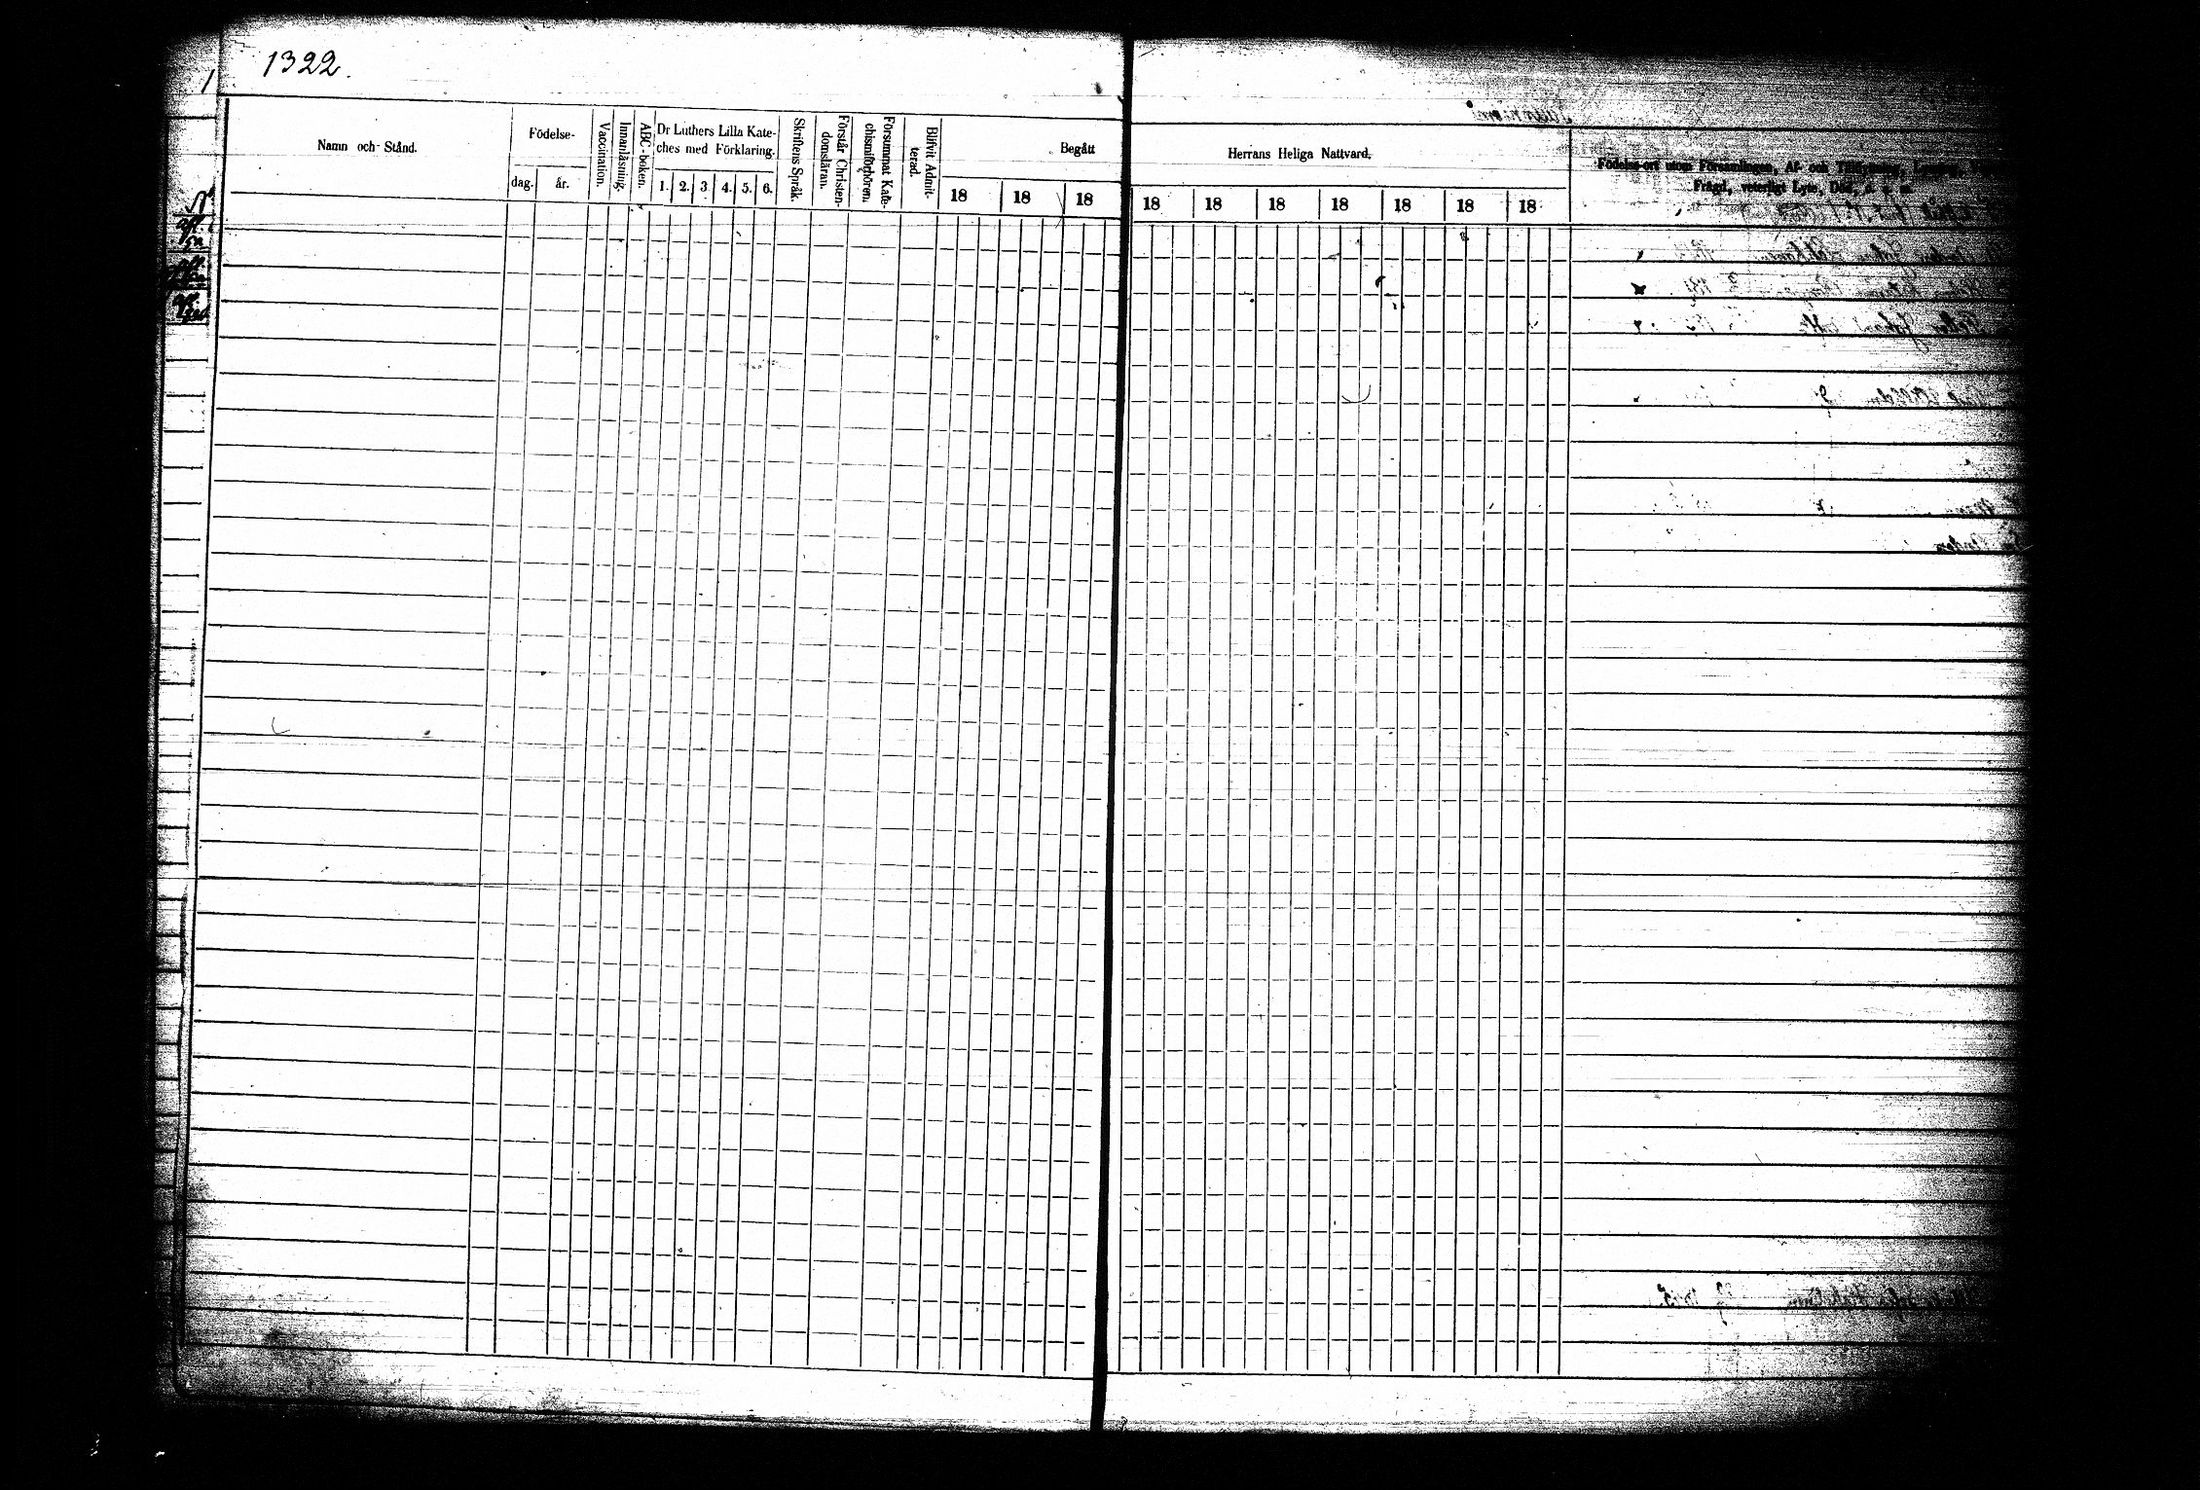 1322.
Namn och Stånd.
Födelse-
dag.
år.
Vaccination.
Innanläsning.
ABC-boken.
Dr Luthers Lilla Kate-
ches med Förklaring.
1. 2. 3 4. 5. 6.
Skriftens Språk.
Förstår Christen-
domsläran.
Försummat Kate-
chismiförhören.
Blifvit Admit-
terad.
Begått
18 18 18
Herrans Heliga Nattvard.
18 18 18 18 18 18 18
Födelse-ort utom Församlingen, Af- och Tillflyttning,
Frägd, veterligt Lyte, Död,